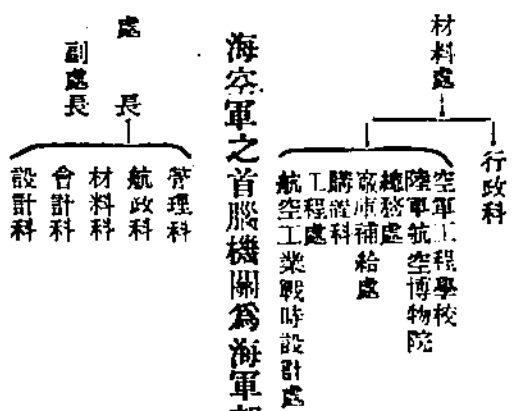 材料處
行政科
空軍工程學校
陸軍航空博物院
總務處
廠庫補給處
購置科
工程處
航空工業戰時設計處
海空軍之首腦機關爲海軍部
處長
副處長
管理科
航政科
材料科
會計科
設計科